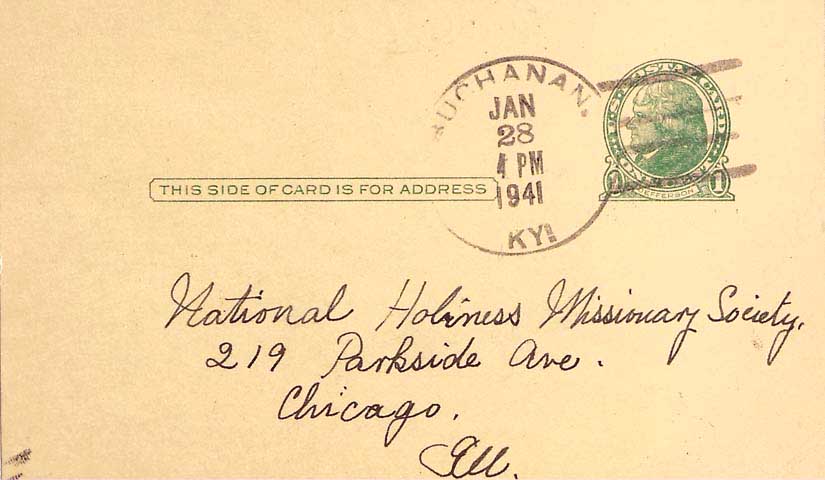 BUCHANAN.
JAN
28
4 PM
1941
KY.
U.S. POSTAL CARD
1 JEFFERSON 1
THIS SIDE OF CARD IS FOR ADDRESS
National Holiness Missionary Society.
219 Parkside Ave.
Chicago.
Ill.